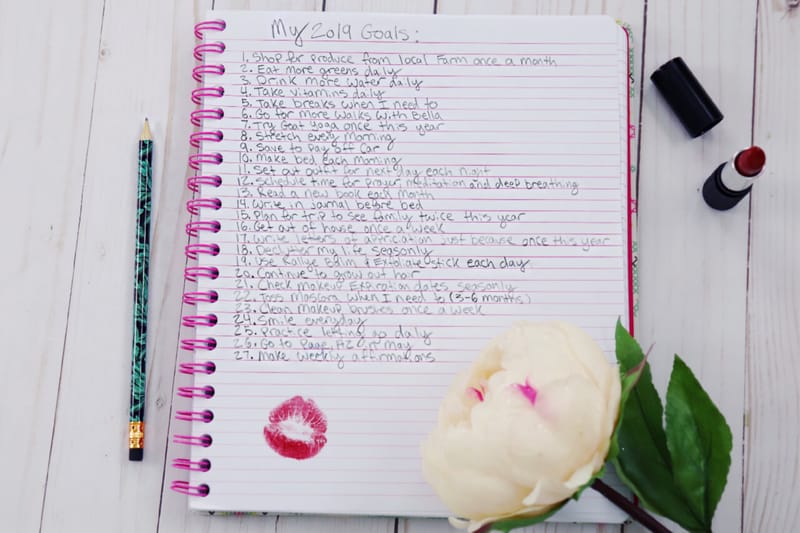 My 2019 Goals:
1. Shop for produce from local Farm once a month
2. Eat more greens daily
3. Drink more water daily
4. Take vitamins daily
5. Take breaks when I need to
6. Go for more walks with Bella
7. Try Goat Yoga once this year
8. Stretch every morning
9. Save to Pay off Car
10. Make bed each morning
11. Set out outfit for next day each night
12. Schedule time for prayer, meditation and deep breathing
13. Read a new book each month
14. Write in journal before bed
15. Plan for trip to see family twice this year
16. Get out of house once a week
17. Write letters of appriciation just because once this year
18. Declutter my life seasonly
19. Use Kollye Balm & Exfoliate stick each day
20. Continue to grow out hair
21. Check makeup Expiration dates seasonly
22. Toss Mascara when I need to (3-6 months)
23. Clean Makeup brushes once a week
24. Smile everyday
25. Practice letting go daily
26. Go to Page, AZ in may
27. Make weekly affirmations